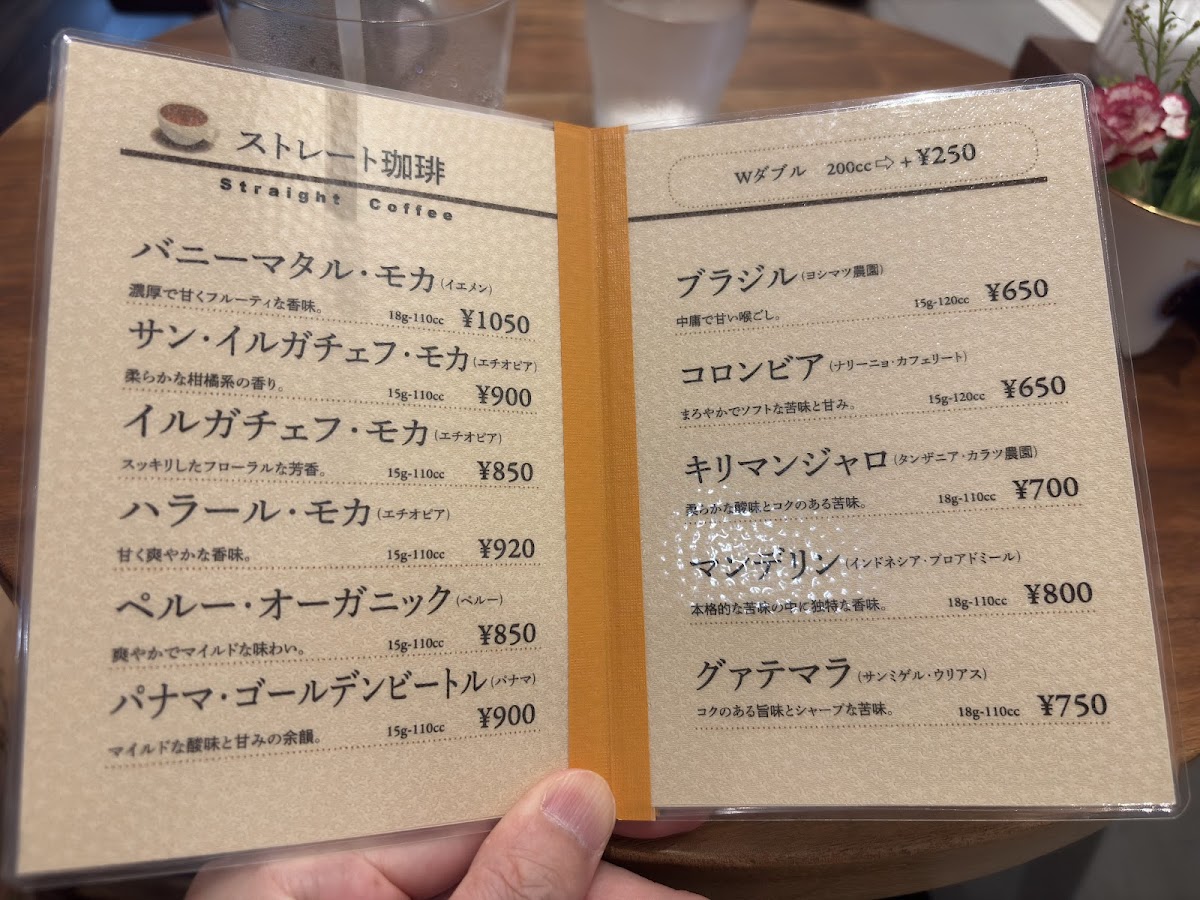 ストレート珈琲
Straight Coffee
バニーマタル・モカ(イエメン)
濃厚で甘くフルーティな香味。 18g-110cc ¥1050
サン・イルガチェフ・モカ(エチオピア)
柔らかな柑橘系の香り。 15g-110cc ¥900
イルガチェフ・モカ(エチオピア)
スッキリしたフローラルな芳香。 15g-110cc ¥850
ハラール・モカ(エチオピア)
甘く爽やかな香味。 15g-110cc ¥920
ペルー・オーガニック(ペルー)
爽やかでマイルドな味わい。 15g-110cc ¥850
パナマ・ゴールデンビートル(パナマ)
マイルドな酸味と甘みの余韻。 15g-110cc ¥900
Wダブル 200cc⇨+¥250
ブラジル(ヨシマツ農園)
中庸で甘い喉ごし。 15g-120cc ¥650
コロンビア(ナリーニョ・カフェリート)
まろやかでソフトな苦味と甘み。 15g-120cc ¥650
キリマンジャロ(タンザニア・カラツ農園)
柔らかな酸味とコクのある苦味。 18g-110cc ¥700
マンデリン(インドネシア・ブロアドミール)
本格的な苦味の中に独特な香味。 18g-110cc ¥800
グァテマラ(サンミゲル・ウリアス)
コクのある旨味とシャープな苦味。 18g-110cc ¥750